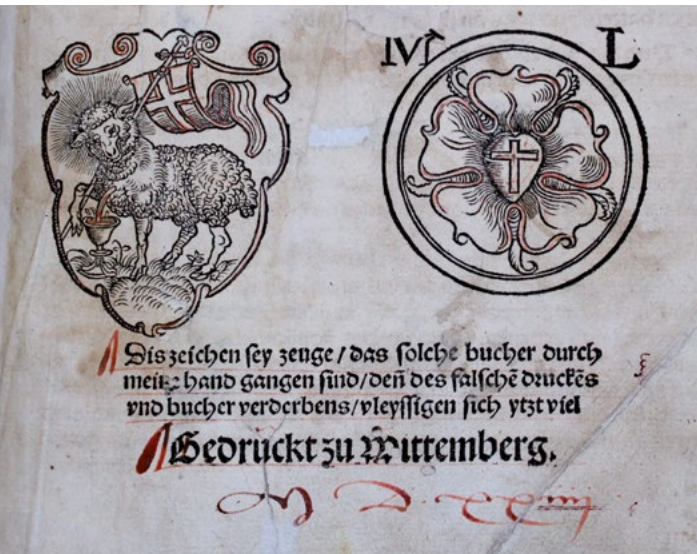 M L
Dis zeichen sey zeuge / das solche bucher durch
meine hand gangen sind / deñ des falschẽ druckẽs
vnd bucher verderbens / vleyssigen sich ytzt viel
Gedruckt zu Wittemberg.
M D xxiiij